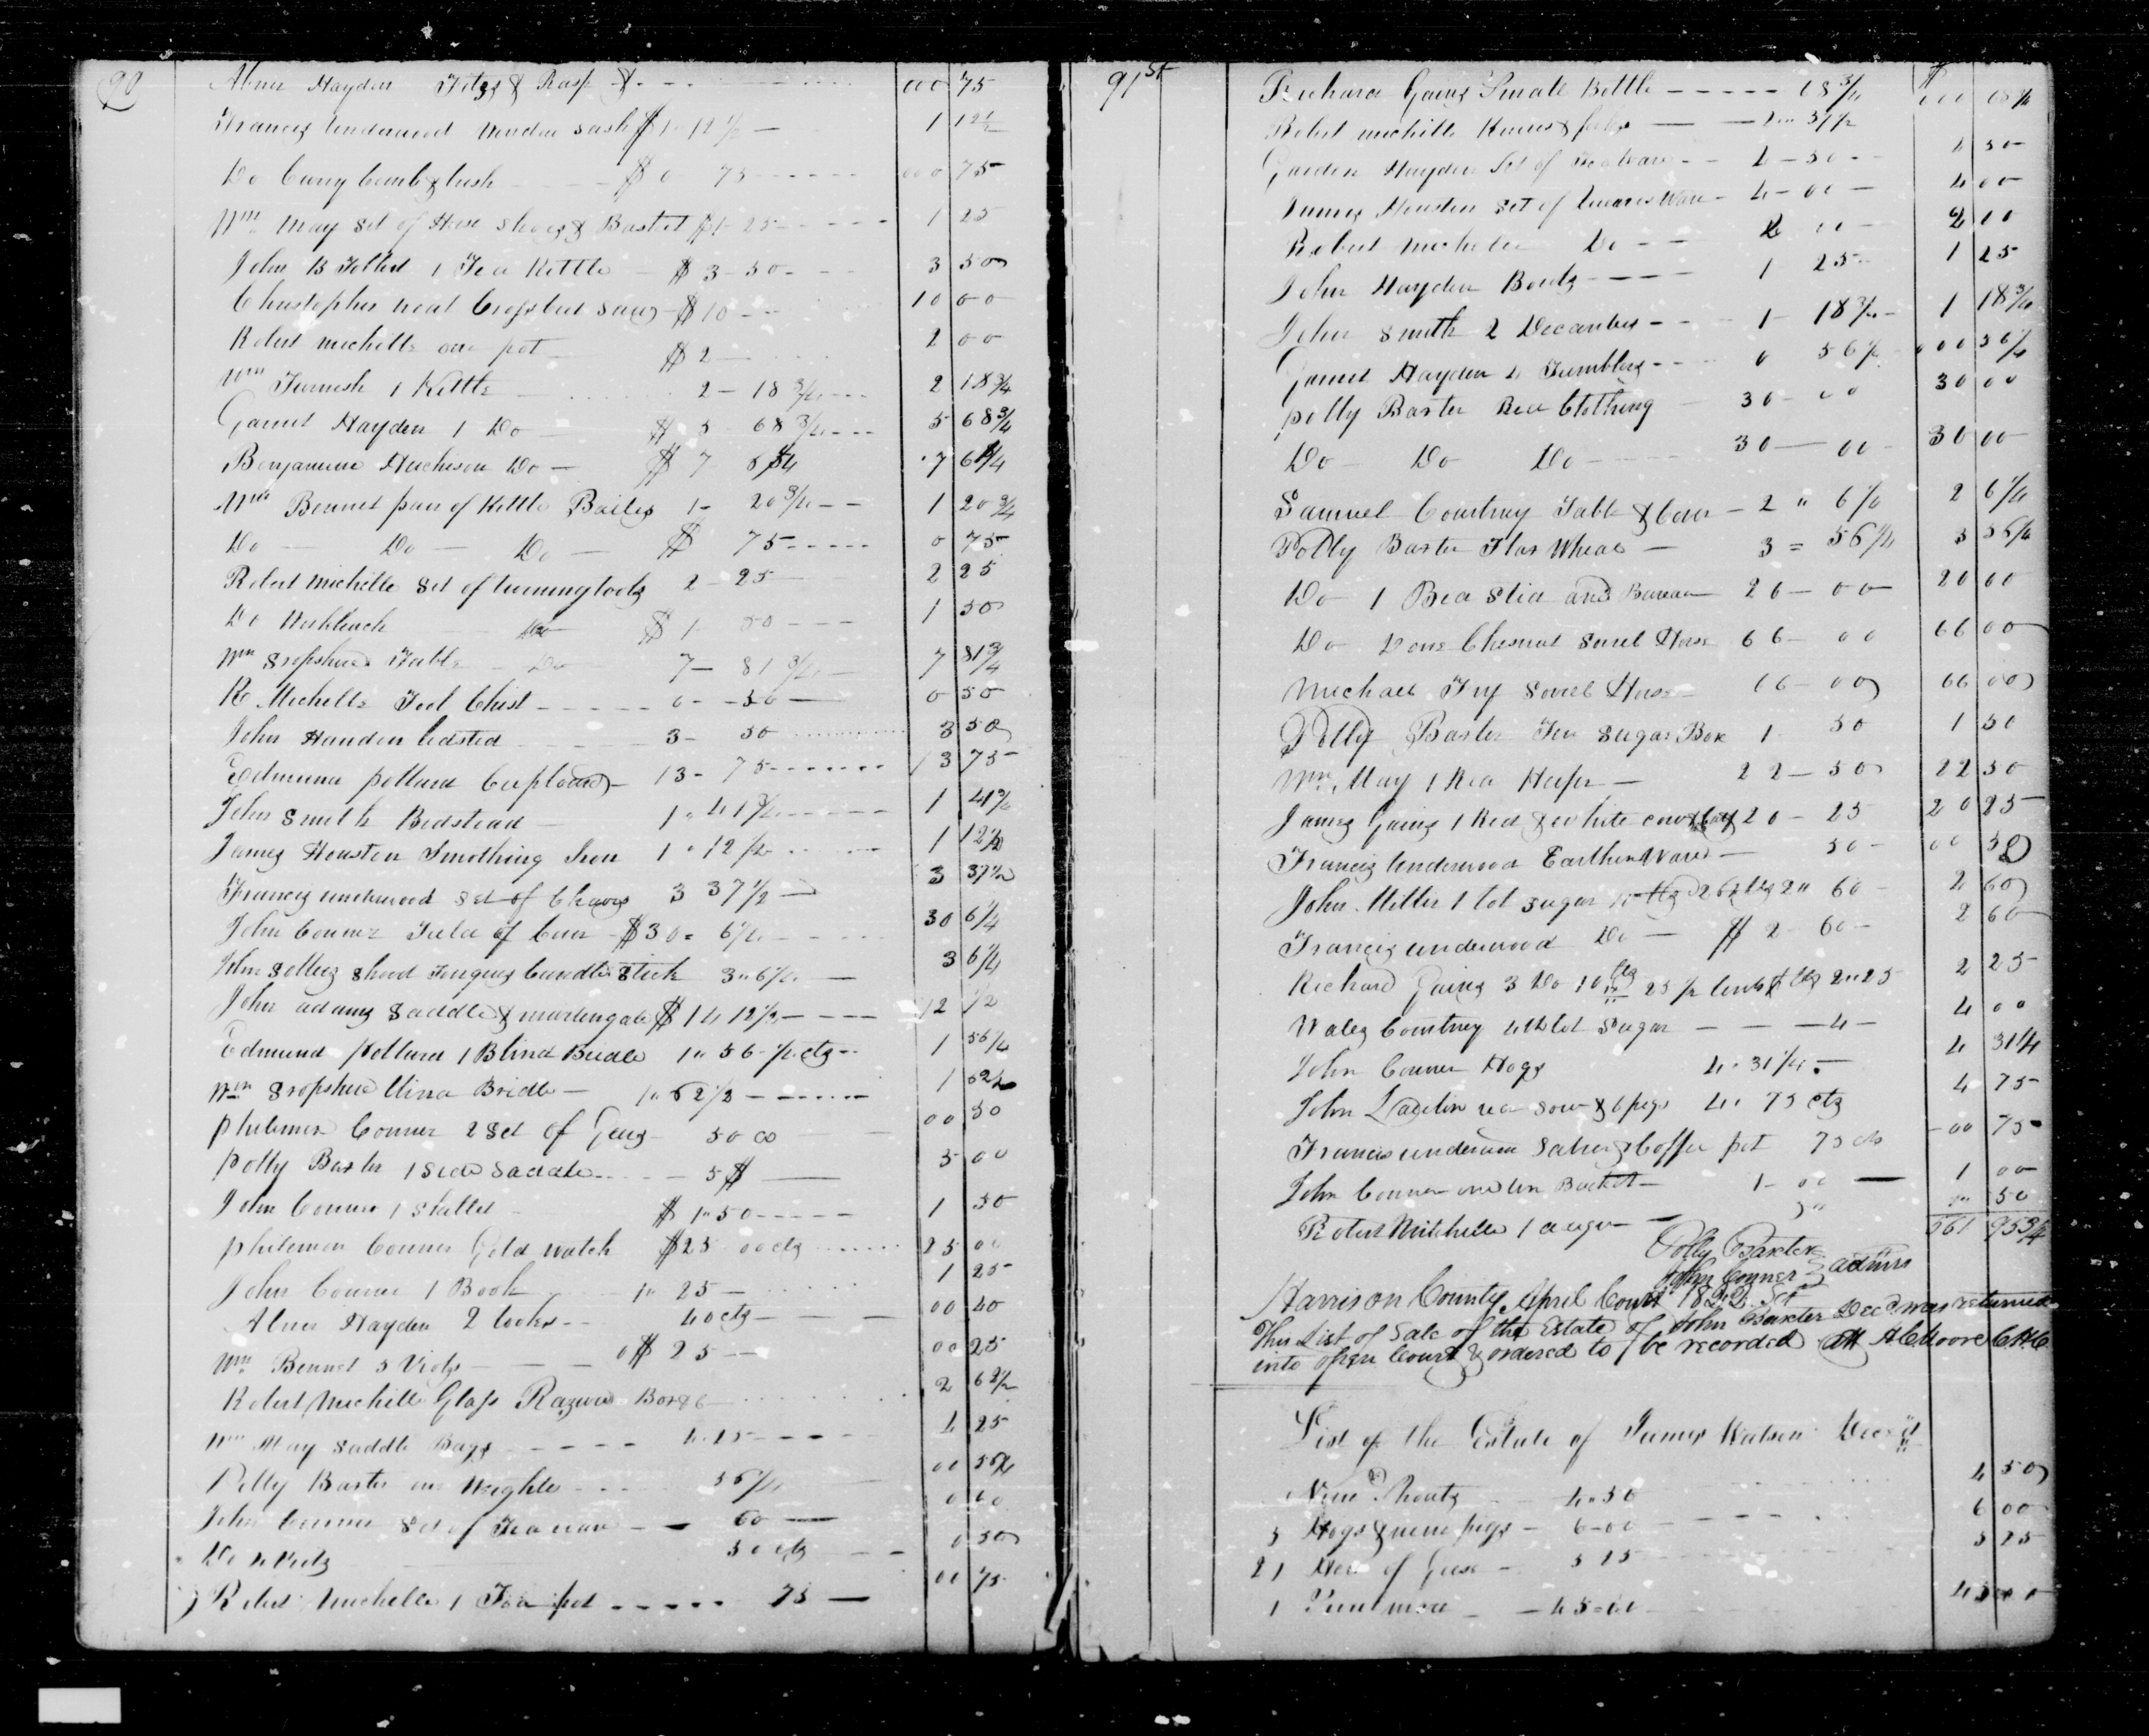 90
Abner Hayden Filzs & Rasp $ 000 75
Francis Underwood Window Sash $1- 12 1/2 — 1 12 1/2
Do Curry Comb & brush $0 75 000 75
Wm May Set of Shoe Shoes & Basket $1-25 1 25
John B 1 Tea Kettle $3-50 3 50
Christopher Neal Crosscut Saw $10 10 00
Robert Michelle one pot $2 2 00
Wm Furnish 1 Kettle 2-18 3/4 2 18 3/4
Garret Hayden 1 Do $5 68 3/4 5 68 3/4
Benjamin Hucheson Do $7 7 61/4
Wm Bennet pair of Kettle Bailes 1- 20 3/4 1 20 3/4
Do — Do — Do — $ 75 0 75
Robert Michelle Set of turning tools 2-25 2 25
Do Workbench Do $1 50 1 50
Wm Sropshire Table Do 7- 81 3/4 7 81 3/4
Ro Michelle Tool Chist 0-50 0 50
John Handen bedsted 3- 50 3 50
Edmund pollard Cupboard 13-75 13 75
John Smith Bedstead 1"41 3/4 1 41 3/4
James Houston Smothing Iron 1"12 1/2 1 12 1/2
Francis underwood Set of Chairs 3 37 1/2 3 37 1/2
John Conner of Corn $30= 6 1/4 30 6 1/4
John Sellers Shovel Tongues Candle Stick 3"6 1/4 3 6 1/4
John adams Saddle & martengale $14 12 1/2 12 1/2
Edmund pollard 1 Blind Bridle 1"56 1/4 cts 1 56 1/4
Wm Sropshire Bridle 1"62 1/2 1 62 1/2
philemon Conner 2 Set of Gears 50 00 50
Polly Baxter 1 Side Saddle 5$ 5 00
John Conner 1 Skillet $1"50 1 50
philemon Conner Gold watch $25 00 cts 25 00
John Conner 1 Book 1"25 1 25
Abner Hayden 2 books 40 cts 00 40
Wm Bennet 5 0$ 25 00 25
Robert Michelle Glass Razors Box 2 62 1/2
Wm May Saddle Bags 4.25 4 25
Polly Baxter Weights 56 1/4 00 56 1/4
John Conner Set of Teaware 60 0 60
Do 50 cts 0 50
Robert Michelle 1 Tea pot 75 00 75
91st
Richard Gaines Small Kettle 18 3/4 000 18 3/4
Robert Michelle Knives & forks 31 1/2
Garden Hayden Set of Teaware 4-50 4 50
James Houston Set of Ware 4-00 4 00
Robert Michelle Do 2 00 2 00
John Hayden Books 1 25 1 25
John Smith 2 Decanters 1- 18 3/4 1 18 3/4
Garret Hayden 4 Tumblers 0 56 1/4 000 56 1/4
polly Baxter Bed Clothing 30-00 30 00
Do Do Do 30—00 30 00
Samuel Courtney Table & Cover 2"6 1/4 2 6 1/4
Polly Baxter Flax Wheal 3=56 1/4 3 56 1/4
Do 1 Bed Sted and Bureau 26-00 20 00
Do one Chesnut Sorrel Horse 66-00 66 00
Michael Fry Sorrel Horse 66-00 66 00
Polly Baxter Tea Sugar Box 1 50 1 50
Wm May 1 Red Heifer 22-50 22 50
James Gaines 1 Red & white cow & calf 20-25 20 25
Francis Underwood Earthen Ware 50 00 50
John Miller 1 lot Sugar 2" 60 2 60
Francis underwood Do $2 60 2 60
Richard Gaines 3 Do 10 lbs 2"25 2 25
Wales Courtney 4th lot Sugar 4 4 00
John Conner Hogs 4-31 1/4 4 31 1/4
John Laughlin red sow & 6 pigs 4. 75 cts 4 75
Francis underwood & Coffee pot 75 cts 00 75
John Conner one tin Bucket 1-00 1 00
Robert Mitchelle 1 auger 50
561 95 3/4
Polly Baxter
John Conner } admrs
Harrison County April Court 1822 Sct
This List of Sale of the Estate of John Baxter Decd was returned
into open Court & ordered to be recorded Att H C Moore C H C
List of the Estate of James Watson Decd
Nine Shoats 4"50 4 50
5 Hogs & nine pigs 6-00 6 00
21 Head of Geese 5 25 5 25
1 mare 45=00 45 00